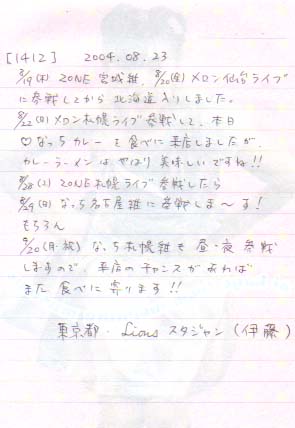 [1412] 2004.08.23
8/19(木) ZONE 宮城経、8/20(金)メロン仙台ライブ
に参戦してから北海道入りしました。
8/22(日)メロン札幌ライブ参戦して、本日
♡なっちカレーを食べに来店しましたが、
カレーラーメンは、やはり美味しいですね!!
8/28(土) ZONE札幌ライブ参戦したら
8/29(日)なっち名古屋経に参戦しま〜す!
もちろん
9/20(月・祝)なっち札幌経も昼・夜参戦
しますので、来店のチャンスがあれば
また食べに寄ります!!
東京都・Lionsスタジャン(伊藤)